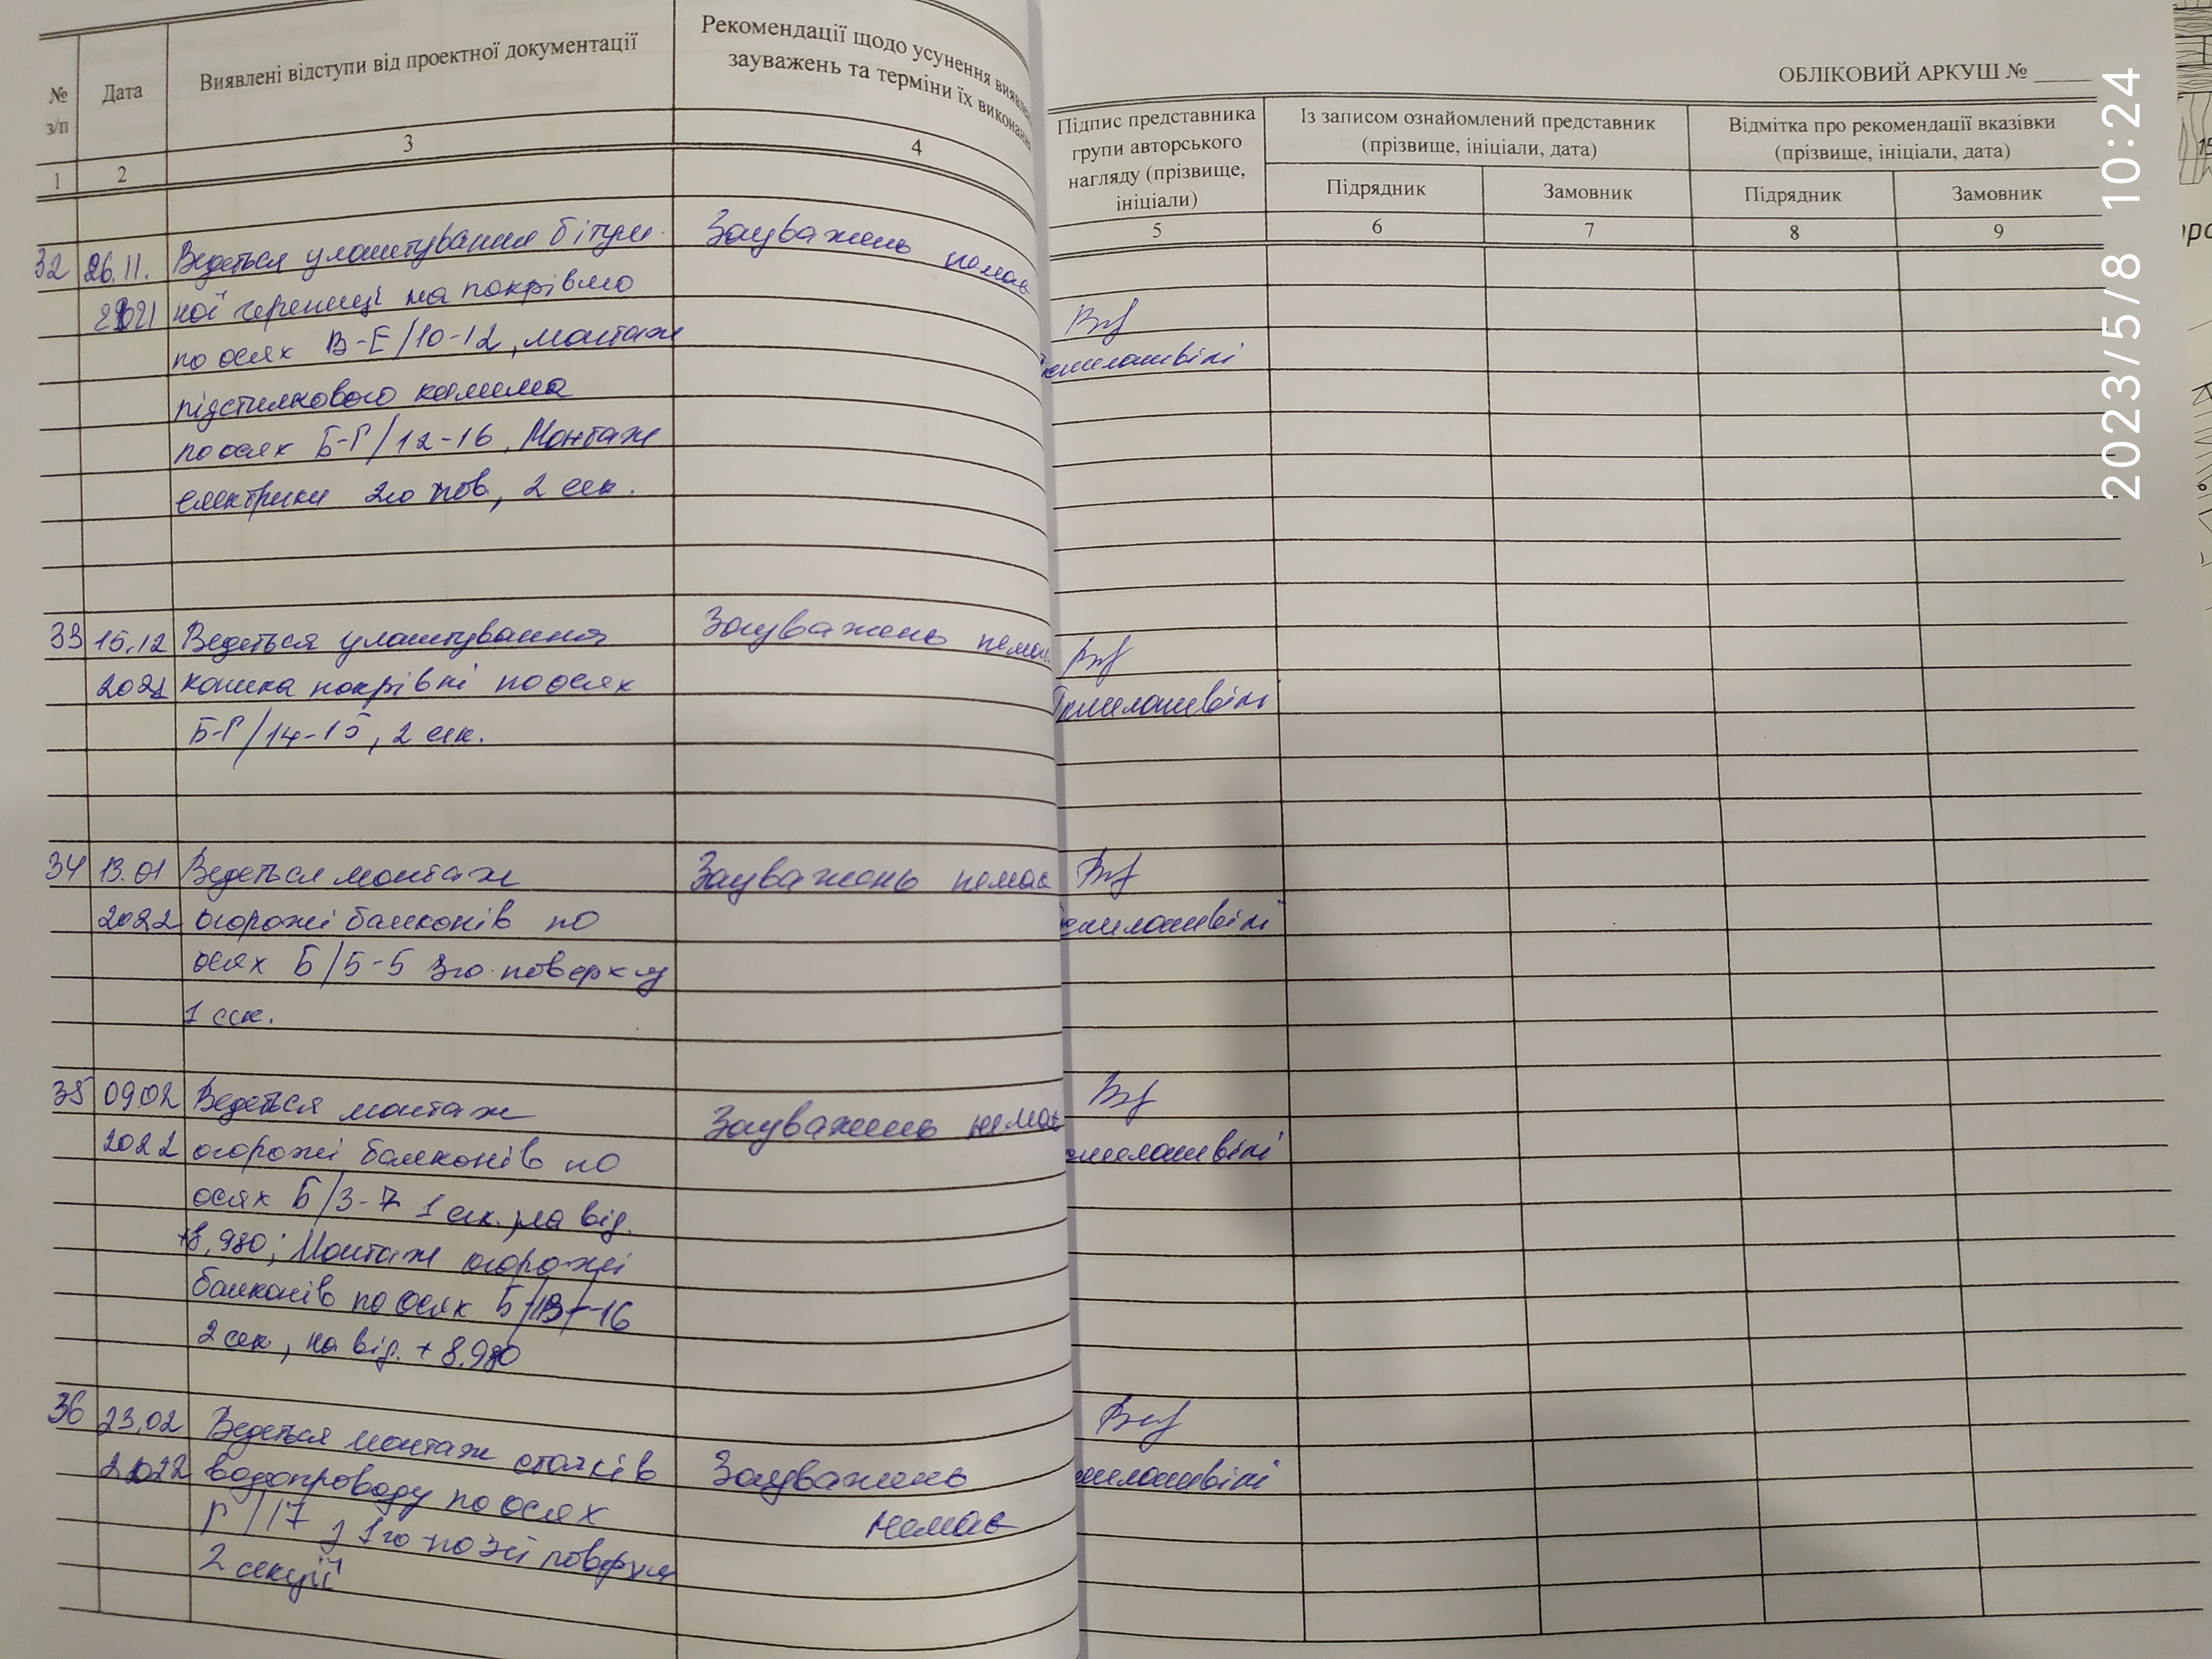 № з/п
Дата
Виявлені відступи від проектної документації
Рекомендації щодо усунення виявлених
зауважень та терміни їх виконання
1
2
3
4
32
26.11.
2021
Ведеться улаштування бітум
ної черепиці на покрівлю
по осях В-Е/10-12, монтаж
підстилкового килима
по осях Б-Г/12-16. Монтаж
електрики 2го пов, 2 сек.
Зауважень немає
33
15.12
2021
Ведеться улаштування
коника покрівлі по осях
Б-Г/14-15, 2 сек.
Зауважень немає
34
13.01
2022
Ведеться монтаж
огорожі балконів по
осях Б/5-5 3го поверху
1 сек.
Зауважень немає
35
09.02
2022
Ведеться монтаж
огорожі балконів по
осях Б/3-7 1 сек. на від.
+8,980; Монтаж огорожі
балконів по осях Б/13-16
2 сек, на від. +8.980
Зауважень немає
36
23.02
2022
Ведеться монтаж стояків
водопроводу по осях
Г/17 з 1го по 3й поверхи
2 секції
Зауважень
немає
ОБЛІКОВИЙ АРКУШ №
Підпис представника
групи авторського
нагляду (прізвище,
ініціали)
Із записом ознайомлений представник
(прізвище, ініціали, дата)
Відмітка про рекомендації вказівки
(прізвище, ініціали, дата)
Підрядник
Замовник
Підрядник
Замовник
5
6
7
8
9
2023/5/8 10:24